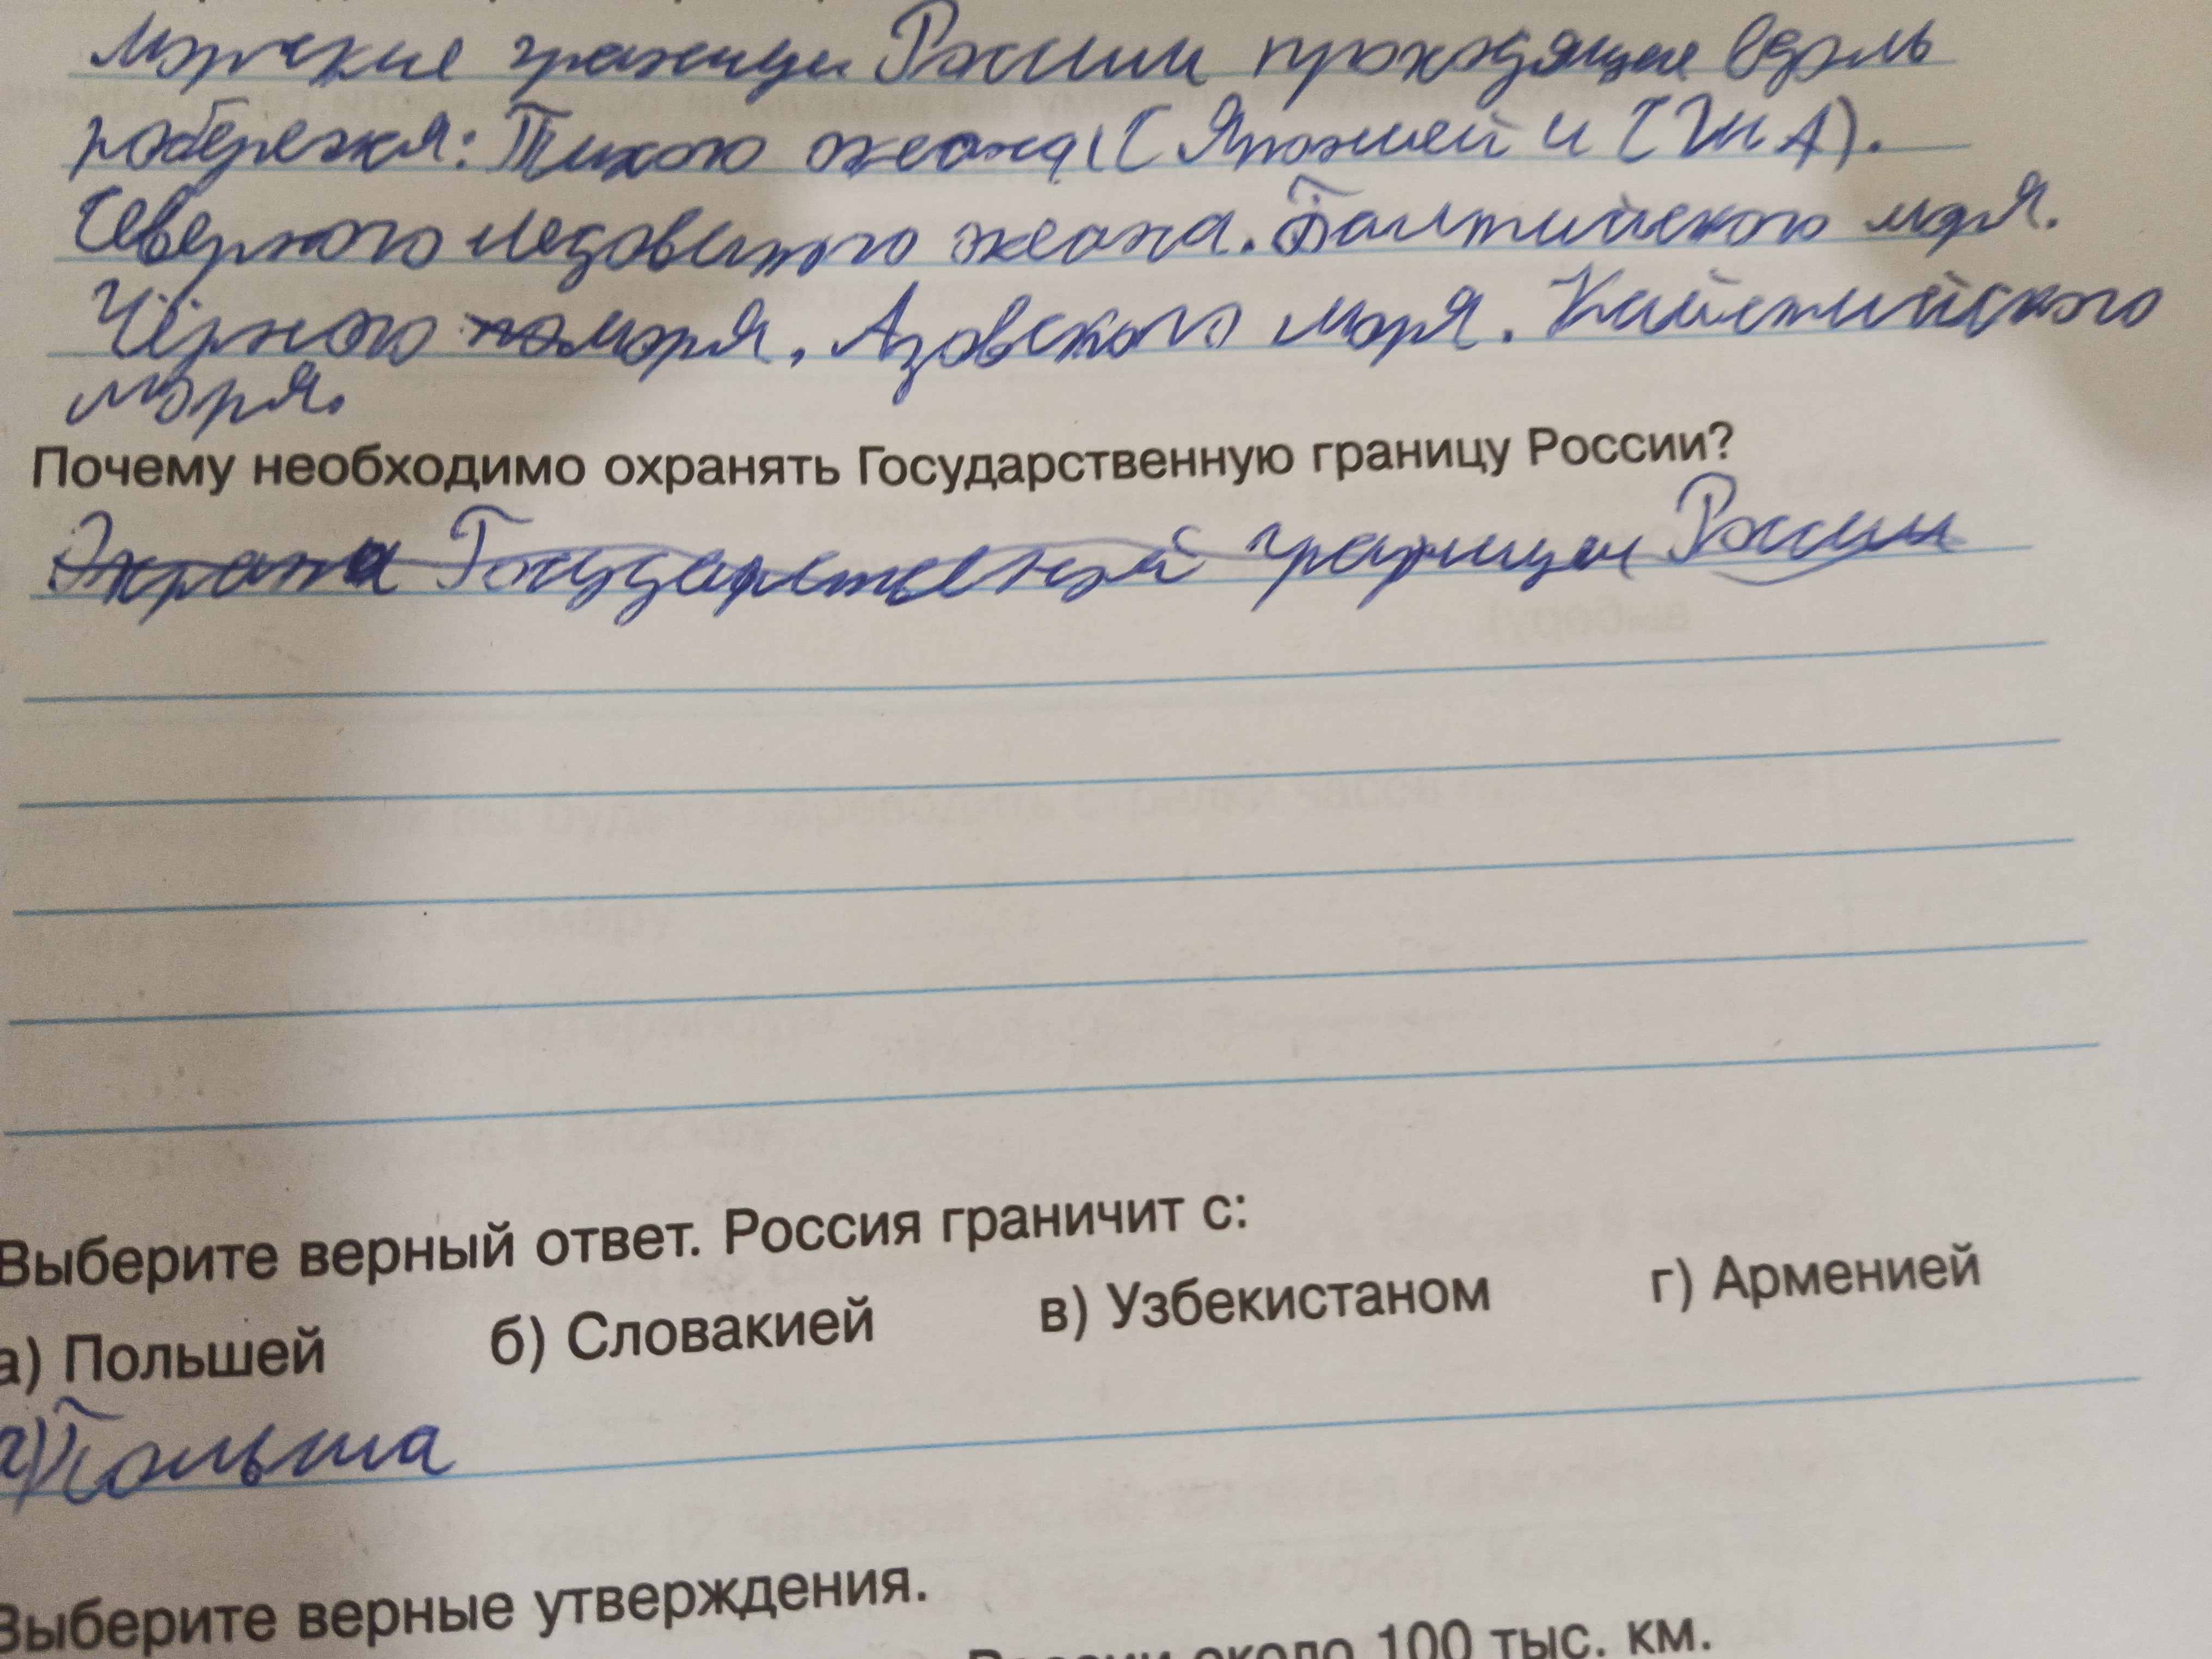 морские границы России проходящие вдоль
побережья: Тихого океана (С Японией и США).
Северного ледовитого океана. Балтийского моря.
Чёрного моря, Азовского моря. Каспийского
моря.
Почему необходимо охранять Государственную границу России?
Охрана Государственной границы России
Выберите верный ответ. Россия граничит с:
а) Польшей б) Словакией в) Узбекистаном г) Арменией
а) Польша
Выберите верные утверждения.
России около 100 тыс. км.